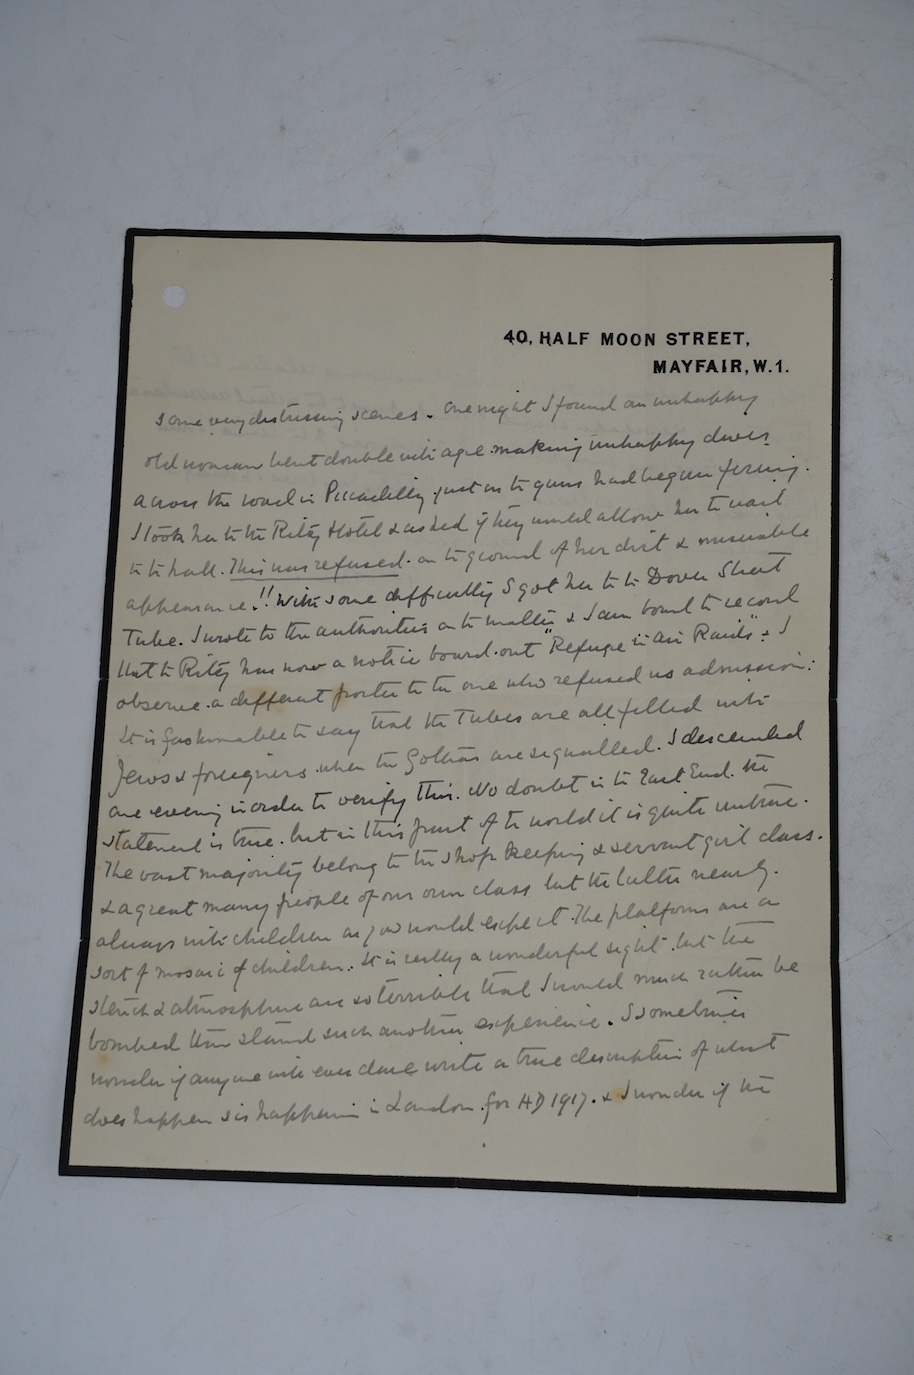 40, HALF MOON STREET,
MAYFAIR, W.1.
some very distressing scenes. One night I found an unhappy
old woman bent double with age making unhappy dives
across the road in Piccadilly just as te guns had begun firing.
I took her to the Ritz Hotel & asked if they would allow her to wait
in te hall. This was refused. on te ground of her dirt & miserable
appearance!! With some difficulty I got her to te Dover Street
Tube. I wrote to the authorities on te matter & I am bound to record
that te Ritz has now a notice board out "Refuge in Air Raids" & I
observe a different porter to te one who refused us admission:
It is fashionable to say that the Tubes are all filled with
Jews & foreigners when te Gothas are signalled. I descended
one evening in order to verify this. No doubt in te East End the
statement is true. but in this part of te world it is quite untrue.
The vast majority belong to te shop keeping & servant girl class.
& a great many people of our own class but the latter nearly
always with children as you would expect. The platforms are a
sort of mosaic of children. It is really a wonderful sight but the
stench & atmosphere are so terrible that I would much rather be
bombed than stand such another experience. I sometimes
wonder if anyone will ever dare write a true description of what
does happen & is happening in London for AD 1917. & I wonder if the